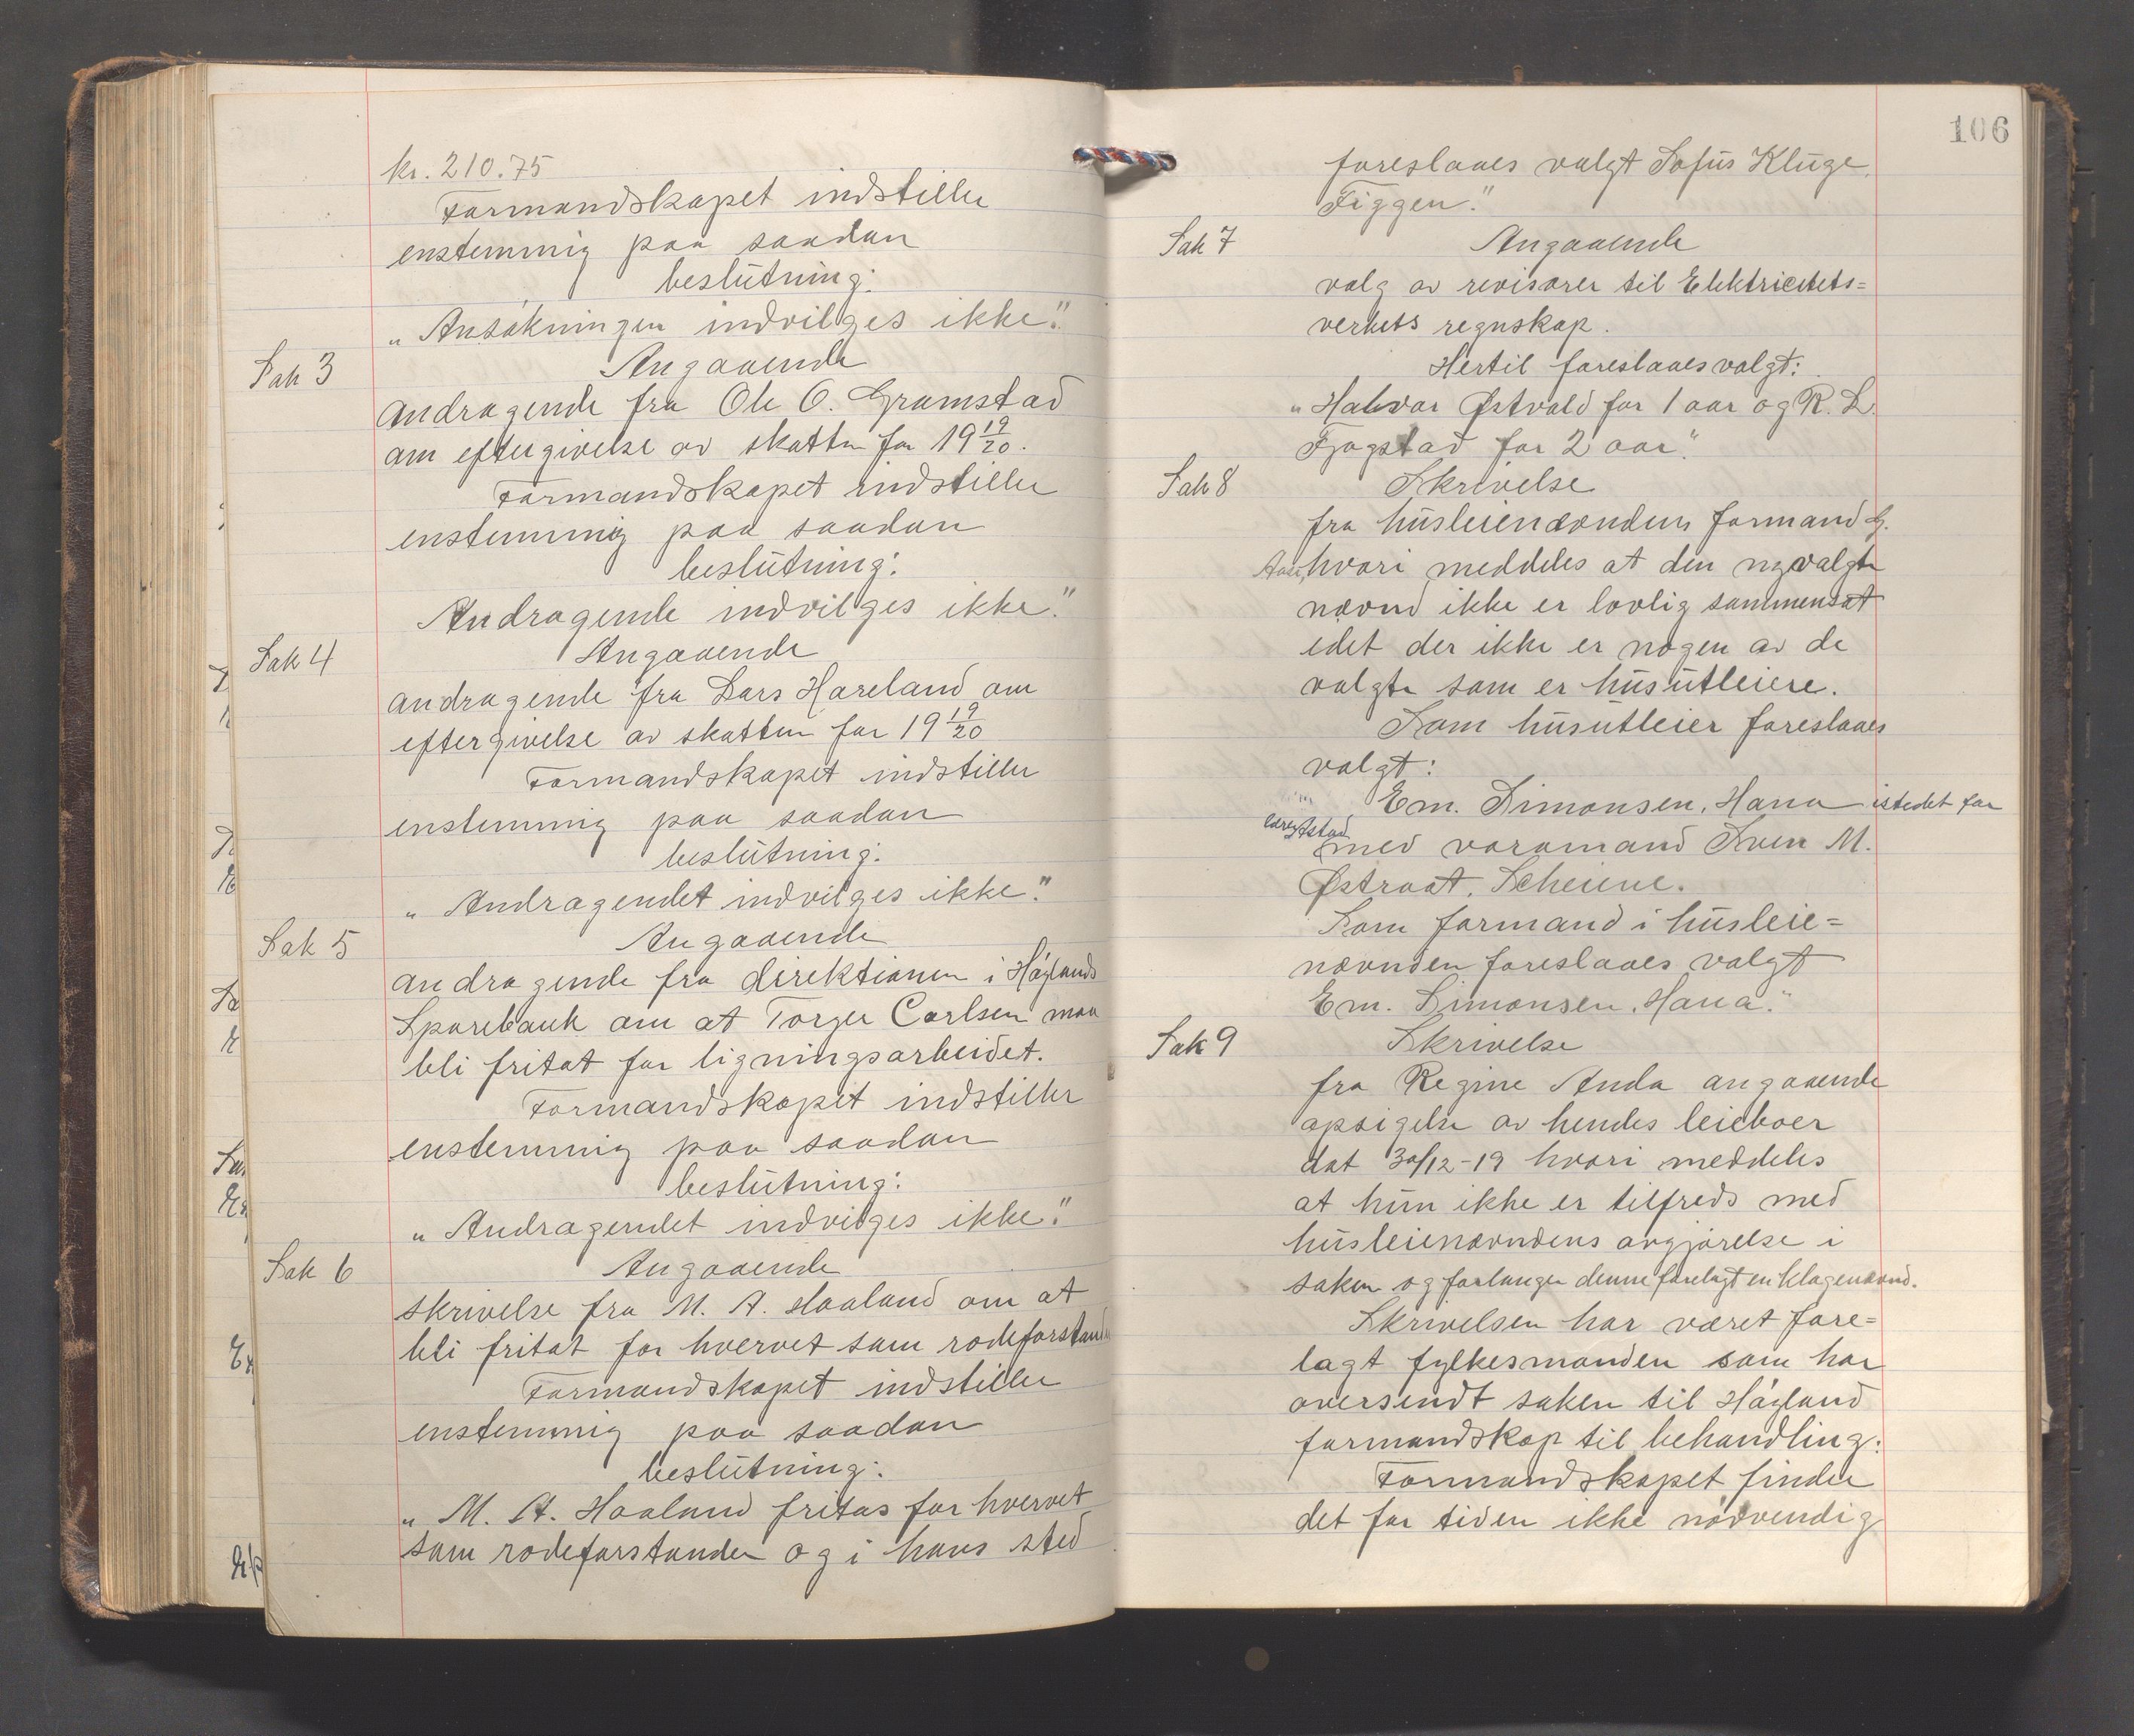 kr. 210.75
Formandskapet indstiller
enstemmig paa saadan
beslutning:
„Ansökningen indvilges ikke."
Sak 3
Angaaende
andragende fra Ole O. Gramstad
om eftergivelse av skatten for 19 19/20.
Formandskapet indstiller
enstemmig paa saadan
beslutning:
Andragende indvilges ikke."
Sak 4
Angaaende
andragende fra Lars Hareland om
eftergivelse av skatten for 19 19/20
Formandskapet indstiller
enstemmig paa saadan
beslutning:
„Andragendet indvilges ikke."
Sak 5
Angaaende
andragende fra direktionen i Höylands
Sparebank om at Torger Carlsen maa
bli fritat for ligningsarbeidet.
Formandskapet indstiller
enstemmig paa saadan
beslutning:
„Andragendet indvilges ikke."
Sak 6
Angaaende
skrivelse fra M. A. Haaland om at
bli fritat for hvervet som rodeforstander
Formandskapet indstiller
enstemmig paa saadan
beslutning:
„M. A. Haaland fritas for hvervet
som rodeforstander og i hans sted
106
foreslaaes valgt Sofus Kluge
Figgen."
Sak 7
Angaaende
valg av revisorer til Elektricitets=
verkets regnskap.
Hertil foreslaaes valgt:
„Halvar Østvold for 1 aar og R. L.
Fjogstad for 2 aar."
Sak 8
Skrivelse
fra husleienævndens formand G.
hvori meddeles at den nyvalgte
nævnd ikke er lovlig sammensat
idet der ikke er nogen av de
valgte som er husutleiere.
Som husutleier foreslaaes
valgt:
Em. Simonsen, Hana istedet for
med varamand Sven M.
Østraat, Scheiene.
Som formand i husleie=
nævnden foreslaaes valgt
Em. Simonsen, Hana."
Sak 9
Skrivelse
fra Regine Anda angaaende
opsigelse av hendes leieboer
dat 30/12-19 hvori meddeles
at hun ikke er tilfreds med
husleienævndens avgjörelse i
saken og forlanger denne forelagt en klagenævnd.
Skrivelsen har været fore=
lagt fylkesmanden som har
oversendt saken til Höyland
formandskap til behandling.
Formandskapet finder
det for tiden ikke nödvendig